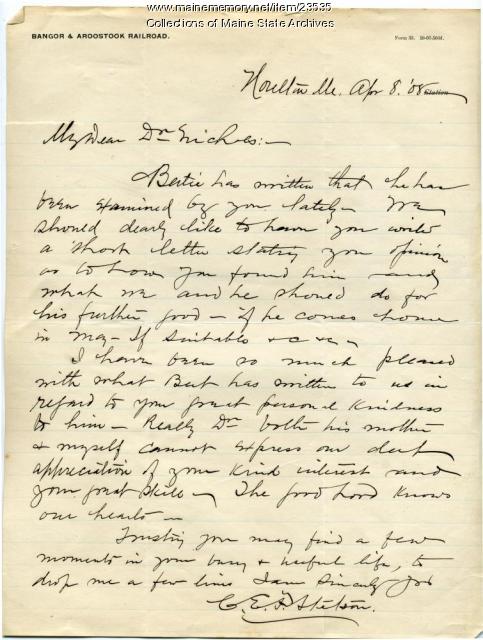 www.mainememory.net/item/23535
Collections of Maine State Archives
BANGOR & AROOSTOOK RAILROAD.
Form 33. 10-07-50M.
Houlton Me. Apr 8. '08 Station
My Dear Dr Nichols:-
Bertie has written that he has
been examined by you lately - We
should dearly like to have you write
a short letter stating your opinion
as to how you found him and
what we and he should do for
his further good - if he comes home
in May - If suitable &c &c -
I have been so much pleased
with what Bert has written to us in
regard to your great personal kindness
to him - Really Dr both his mother
& myself cannot express our deep
appreciation of your kind interest and
your great skill - The good Lord knows
our hearts -
Trusting you may find a few
moments in your busy & useful life, to
drop me a few lines I am Sincerely Yrs
C. E. F. Stetson.